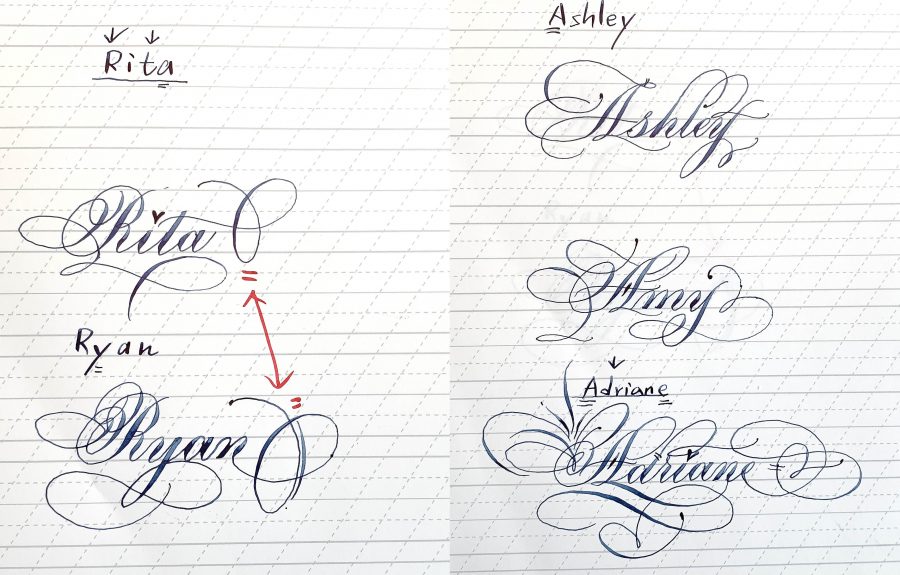 Rita
Rita
Ryan
Ryan
Ashley
Ashley
Amy
Adriane
Adriane